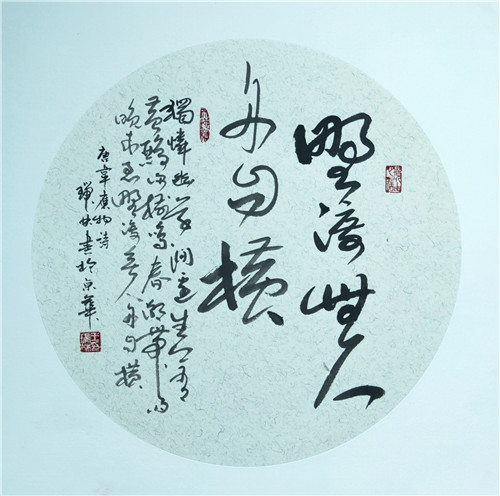 野渡無人
舟自横
獨憐幽草澗邊生上有
黄鸝深樹鳴春潮帶雨
晚來急野渡無人舟自横
唐韋應物詩
書於京華